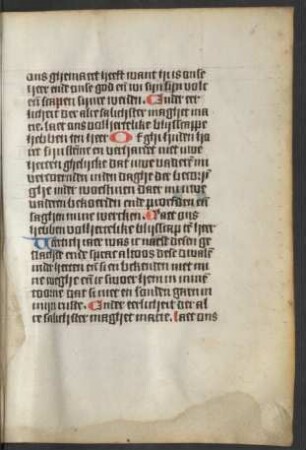 ons ghemaect heeft want hi is onse
here ende onse god en wi sijn sijn volc
en scapen sijnre weiden. Ende eer
licheit der alre salichster maghet ma
rie. laet ons vollhertelike blijscappe
hebben ten here Of ghi huden ha
re stemme en verhardet niet uwe
herten ghelyc dat uwe vaderen mi
vertoernden inden daghe der becorin
ghe inder woestinen daer mi uwe
vaderen becoerden ende proefden en
saghen mine wercken. Laet ons
hebben vollhertelike blijscap ten here
Veertich iaer was ic naest desen ge
slachte ende sprac altoos dese dwalen
inder herten en si en bekenden niet mi
ne weghe en ic swoer hem in minen
toorne dat si niet en souden gaen in
mijn ruste. Ender eerlicheit der al
re salichster maghet marie. laet ons